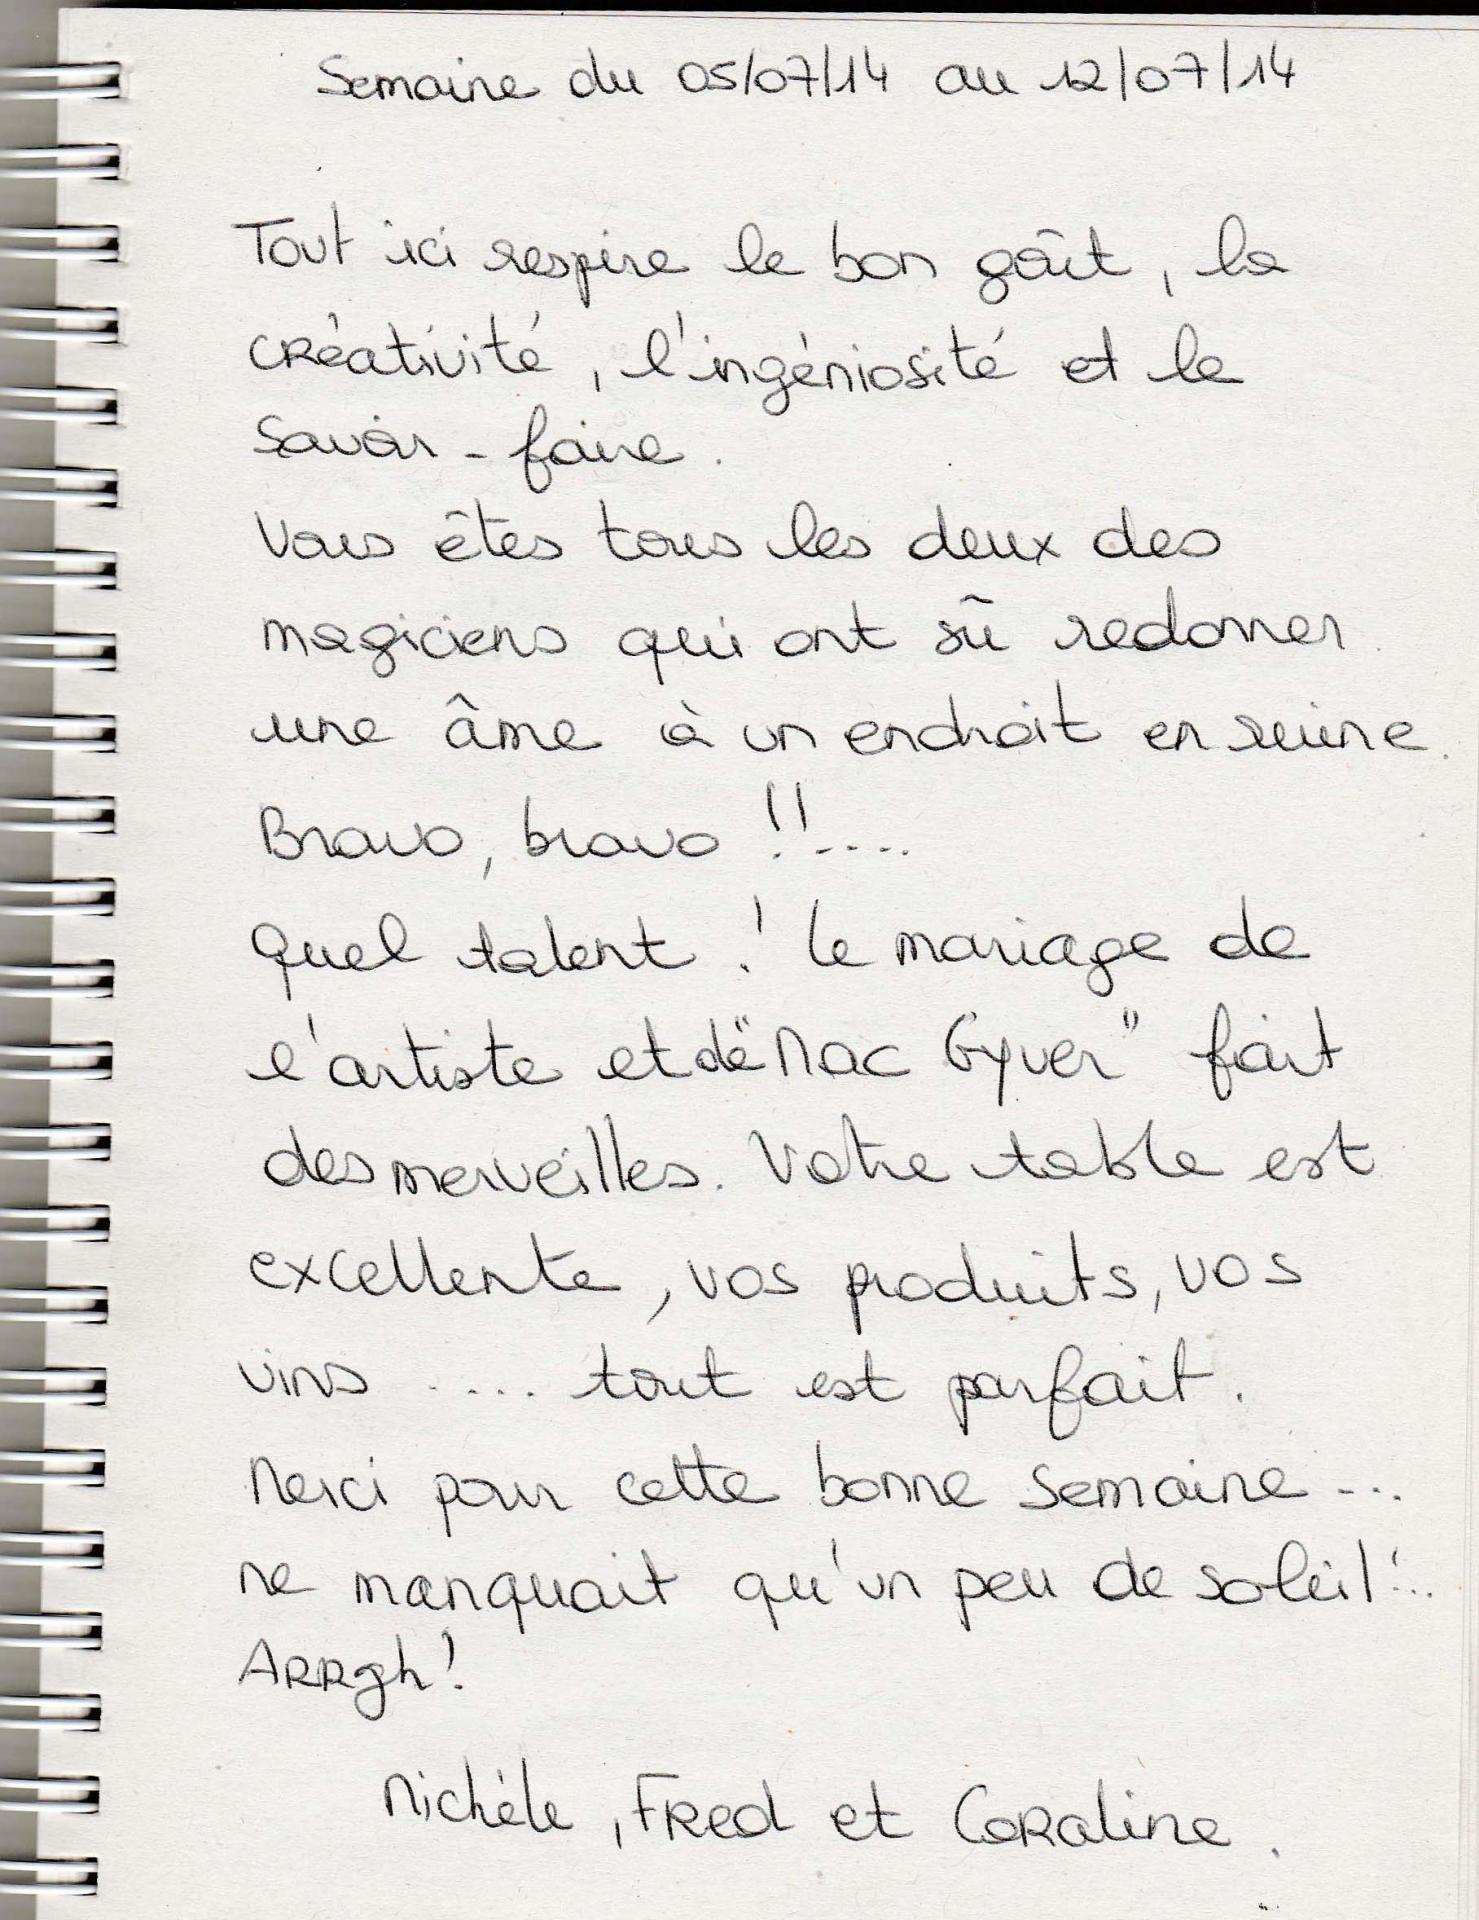 Semaine du 05/07/14 au 12/07/14
Tout ici respire le bon goût, la
créativité, l'ingéniosité et le
savoir-faire.
Vous êtes tous les deux des
magiciens qui ont sû redonner
une âme à un endroit en ruine.
Bravo, bravo !!....
Quel talent ! Le mariage de
l'artiste et de "Mac Gyver" fait
des merveilles. Votre table est
excellente, vos produits, vos
vins .... tout est parfait.
Merci pour cette bonne semaine ...
ne manquait qu'un peu de soleil !..
ARRgh !
Michèle, FRed et CoRaline.